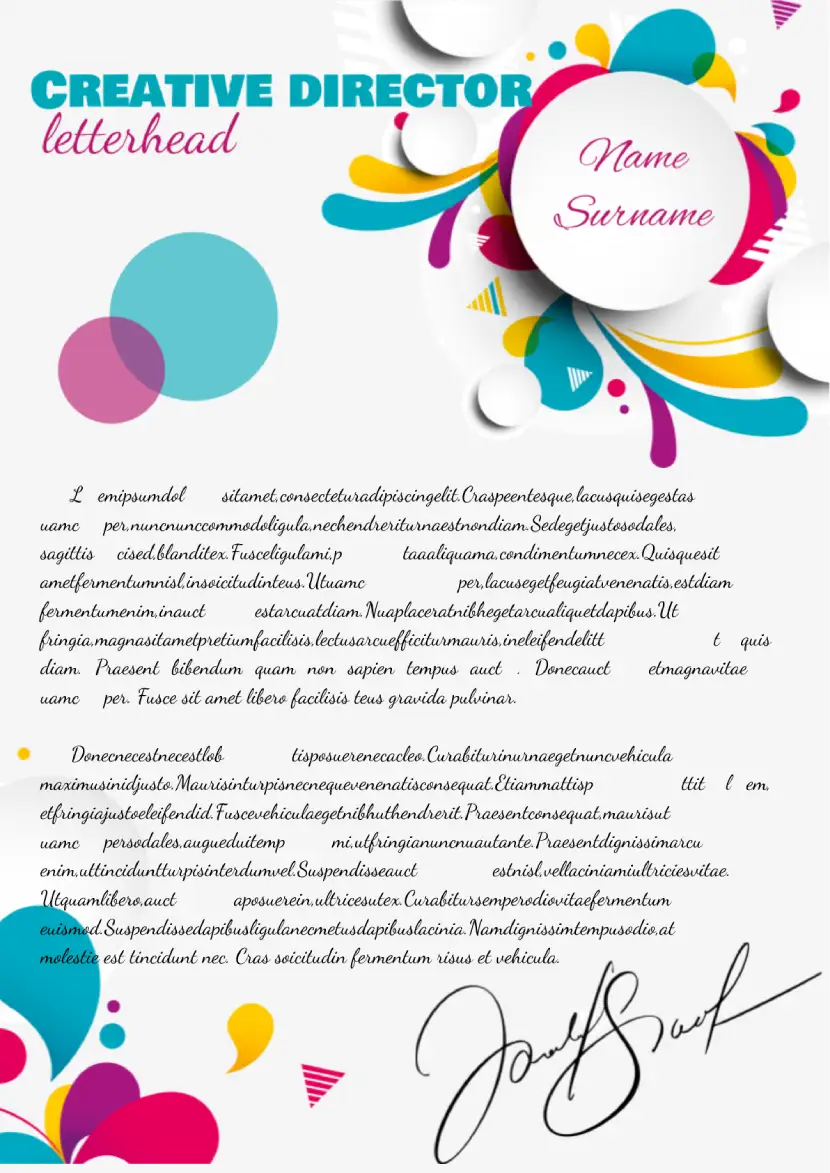 CREATIVE DIRECTOR
letterhead
Name
Surname
L emipsumdol sitamet,consecteturadipiscingelit.Craspeentesque,lacusquisegestas
uamc per,nuncnunccommodoligula,nechendreriturnaestnondiam.Sedegetjustosodales,
sagittis cised,blanditex.Fusceligulami,p taaaliquama,condimentumnecex.Quisquesit
ametfermentumnisl,insoicitudinteus.Utuamc per,lacusegetfeugiatvenenatis,estdiam
fermentumenim,inauct estarcuatdiam.Nuaplaceratnibhegetarcualiquetdapibus.Ut
fringia,magnasitametpretiumfacilisis,lectusarcuefficiturmauris,ineleifendelitt t quis
diam. Praesent bibendum quam non sapien tempus auct . Donecauct etmagnavitae
uamc per. Fusce sit amet libero facilisis teus gravida pulvinar.
Donecnecestnecestlob tisposuerenecacleo.Curabiturinurnaegetnuncvehicula
maximusinidjusto.Maurisinturpisnecnequevenenatisconsequat.Etiammattisp ttit l em,
etfringiajustoeleifendid.Fuscevehiculaegetnibhuthendrerit.Praesentconsequat,maurisut
uamc persodales,augueduitemp mi,utfringianuncnuautante.Praesentdignissimarcu
enim,uttinciduntturpisinterdumvel.Suspendisseauct estnisl,vellaciniamiultriciesvitae.
Utquamlibero,auct aposuerein,ultricesutex.Curabitursemperodiovitaefermentum
euismod.Suspendissedapibusligulanecmetusdapibuslacinia.Namdignissimtempusodio,at
molestie est tincidunt nec. Cras soicitudin fermentum risus et vehicula.